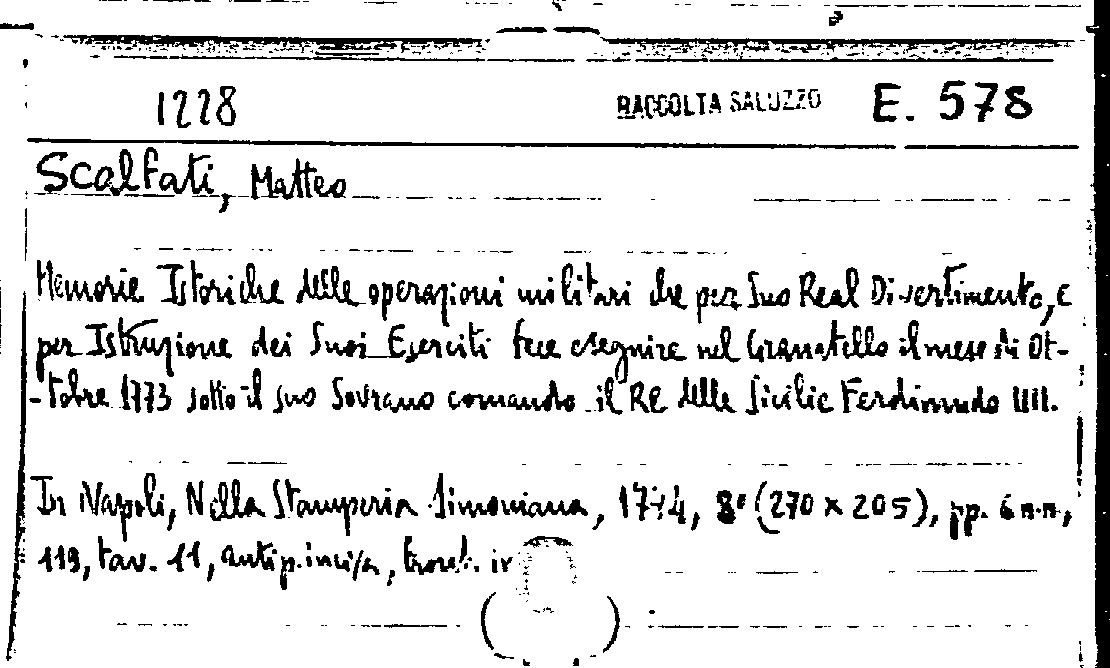 1228 RACCOLTA SALUZZO E. 578
Scalfati, Matteo
Memorie Istoriche delle operazioni militari che per Suo Real Divertimento, e
per Istruzione dei Suoi Eserciti fece eseguire nel Granatello il mese di Ot-
-tobre 1773 sotto il suo Sovrano comando il Re delle Sicilie Ferdinando IIII.
In Napoli, Nella Stamperia Simoniana, 1774, 8° (270 x 205), pp. 6 n.n.,
119, tav. 11, antip. incisa,